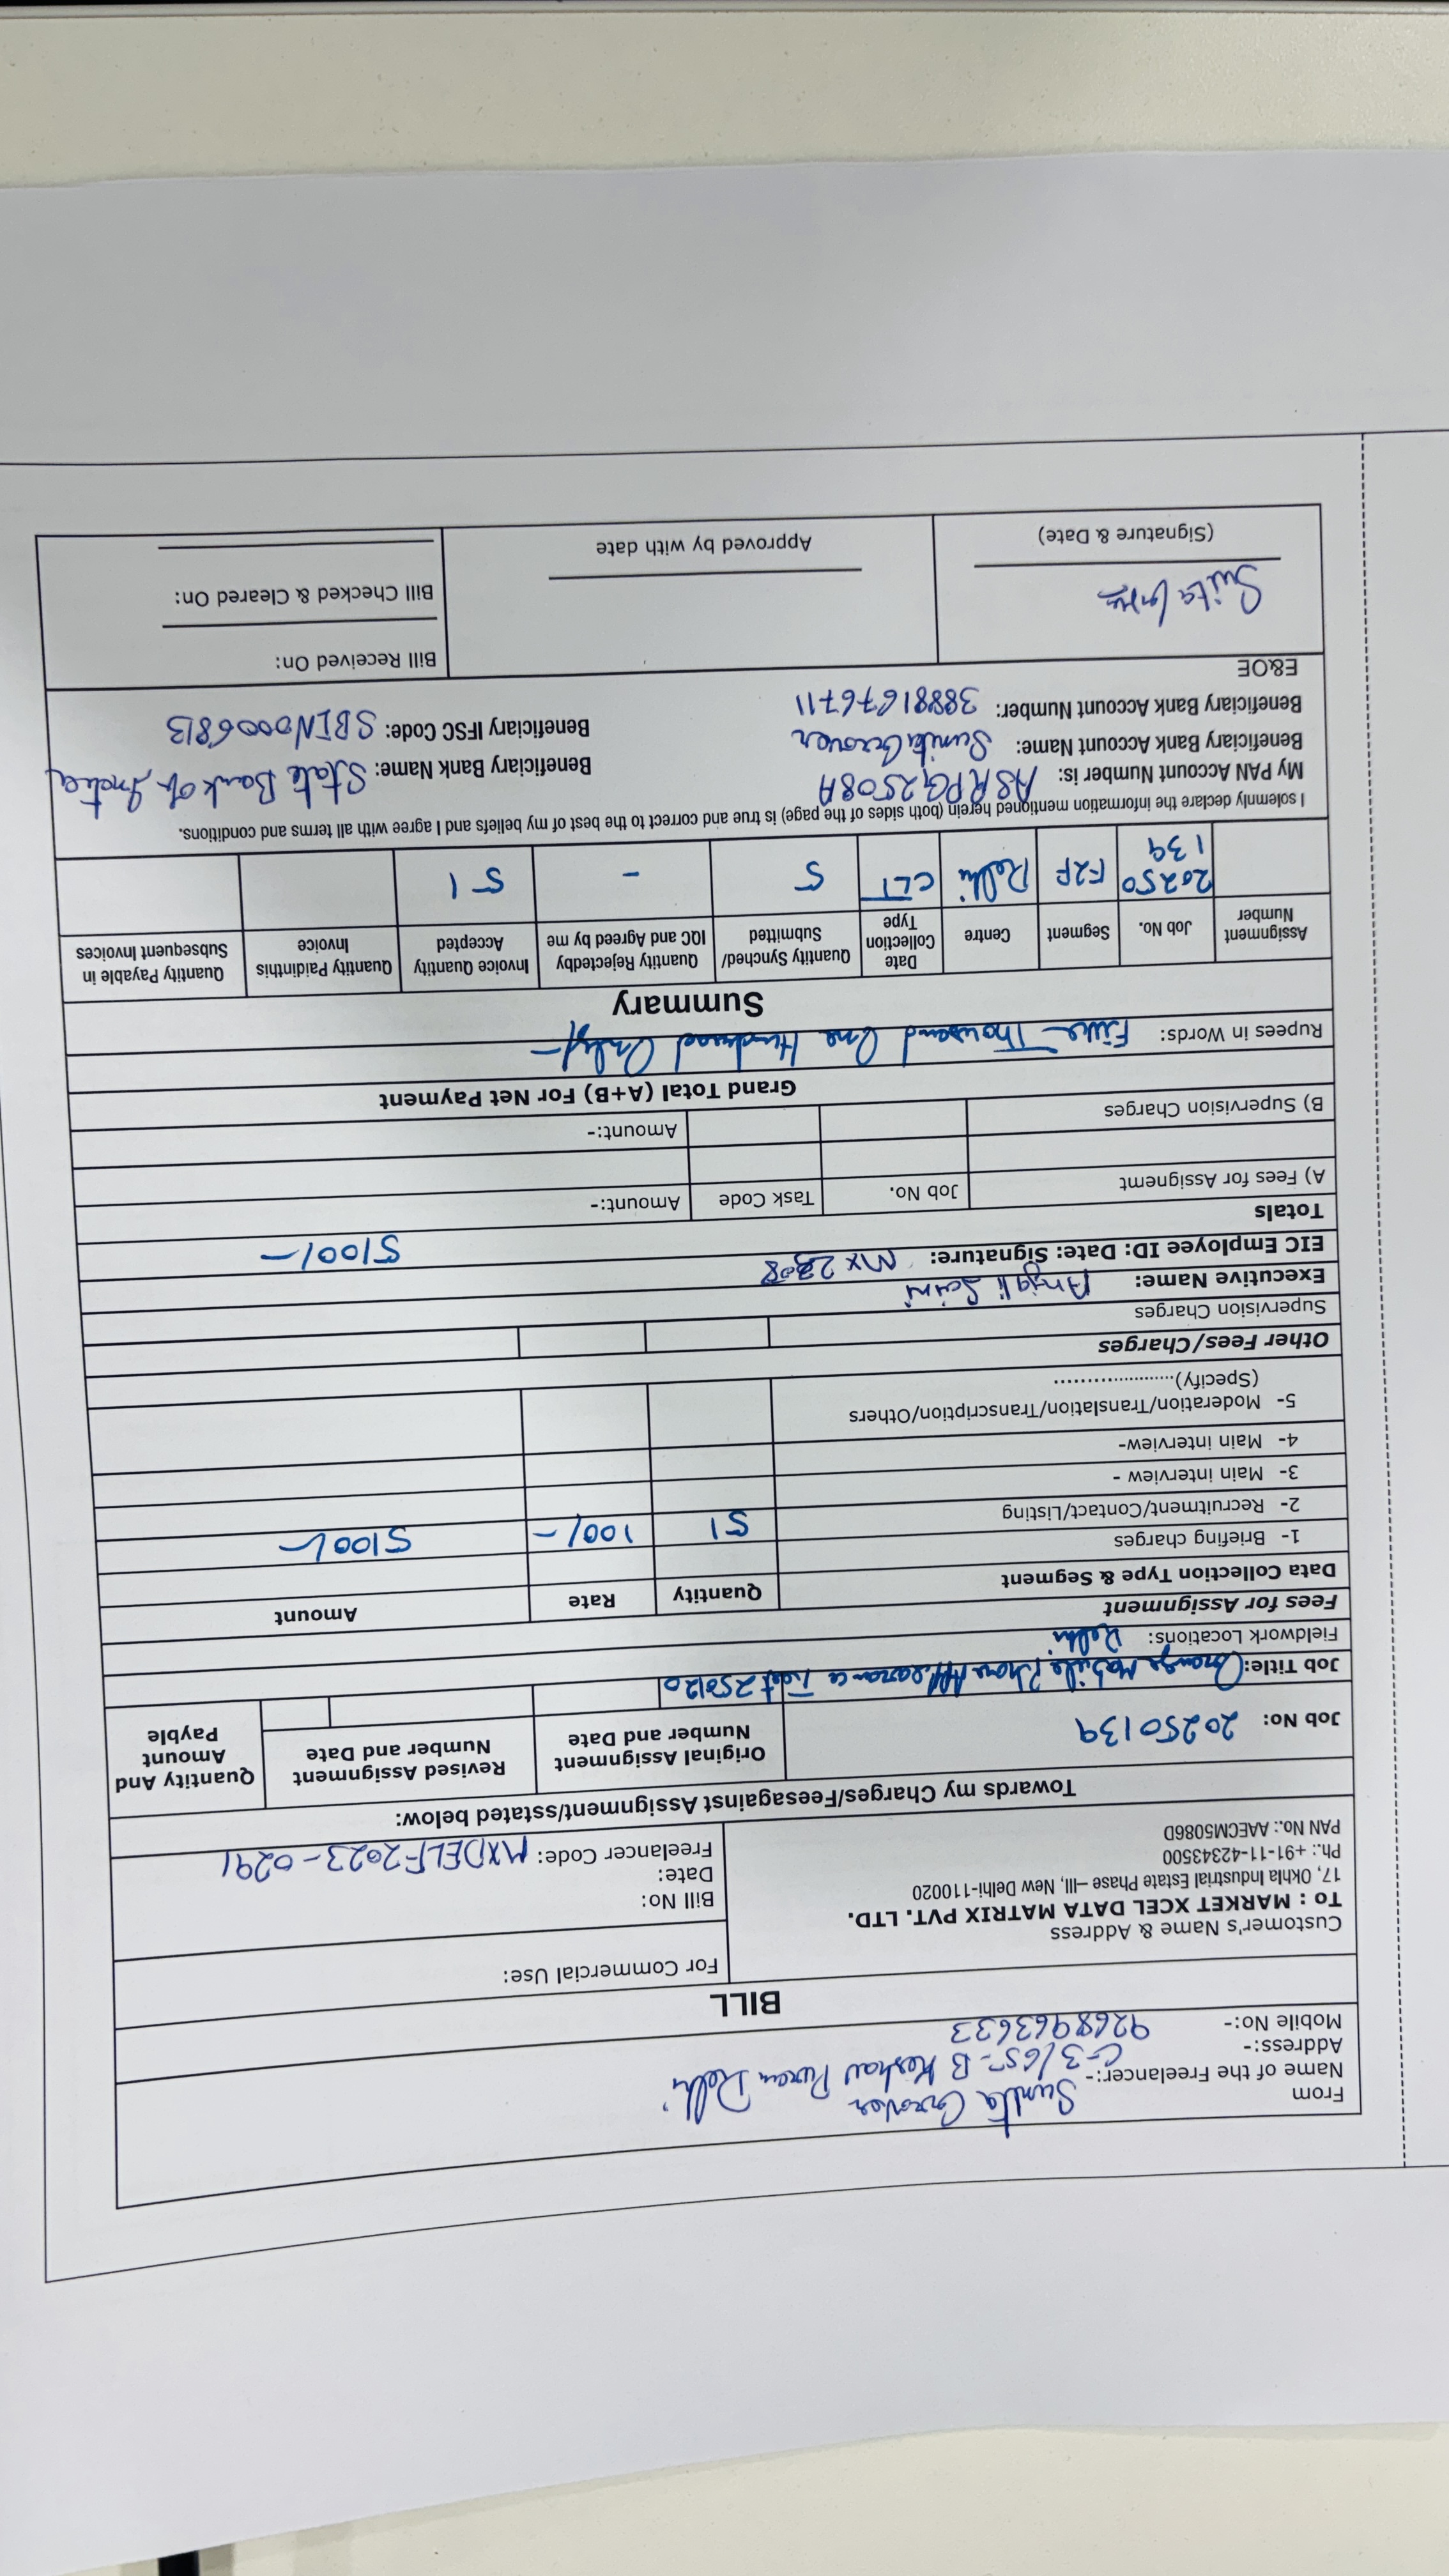 From
Name of the Freelancer:- Sunita Grover
Address:- C-3/65-B Keshav Puram Delhi
Mobile No:- 9268963633
BILL
Customer's Name & Address
To : MARKET XCEL DATA MATRIX PVT. LTD.
17, Okhla Industrial Estate Phase –III, New Delhi-110020
Ph.: +91-11-42343500
PAN No.: AAECM5086D
For Commercial Use:
Bill No:
Date:
Freelancer Code: MXDELF2023-0291
Towards my Charges/Feesagainst Assignment/sstated below:
Job No: 20250139
Original Assignment Number and Date
Revised Assignment Number and Date
Quantity And Amount Payble
Job Title: Orange Mobile Phone Appearance Test 250120
Fieldwork Locations: Delhi
Fees for Assignment
Data Collection Type & Segment Quantity Rate Amount
1- Briefing charges 51 100/- 5100/-
2- Recruitment/Contact/Listing
3- Main interview -
4- Main interview-
5- Moderation/Translation/Transcription/Others
(Specify)......................
Other Fees/Charges
Supervision Charges
Executive Name: Anjali Saini
EIC Employee ID: Date: Signature: MX 2808
Totals 5100/-
A) Fees for Assignemt Job No. Task Code Amount:-
B) Supervision Charges Amount:-
Grand Total (A+B) For Net Payment
Rupees in Words: Five Thousand One Hundred Only/-
Summary
Assignment Number Job No. Segment Centre Date Collection Type Quantity Synched/ Submitted Quantity Rejectedby IQC and Agreed by me Invoice Quantity Accepted Quantity Paidinthis Invoice Quantity Payable in Subsequent Invoices
20250139 F2F Delhi CLT 5 - 51
I solemnly declare the information mentioned herein (both sides of the page) is true and correct to the best of my beliefs and I agree with all terms and conditions.
My PAN Account Number is: ASRPG2508A
Beneficiary Bank Name: State Bank of India
Beneficiary Bank Account Name: Sunita Grover
Beneficiary IFSC Code: SBIN0006813
Beneficiary Bank Account Number: 38881676711
E&OE
Bill Received On:
Bill Checked & Cleared On:
(Signature & Date)
Approved by with date